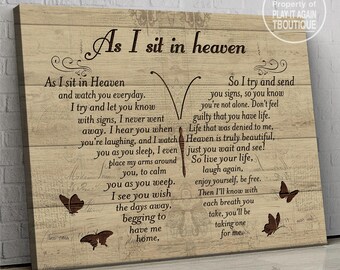 Property of
PLAY-IT AGAIN
TBOUTIQUE
As I sit in heaven
As I sit in Heaven
and watch you everyday.
I try and let you know
with signs, I never went
away. I hear you when
you're laughing, and I watch
you as you sleep, I even
place my arms around
you, to calm
you as you weep.
I see you wish
the days away.
begging to
have me
home.
So I try and send
you signs, so you know
you're not alone. Don't feel
guilty that you have life.
Life that was denied to me,
Heaven is truly beautiful,
just you wait and see!
So live your life,
laugh again,
enjoy yourself, be free.
Then I'll know with
each breath you
take, you'll be
taking one
for me.